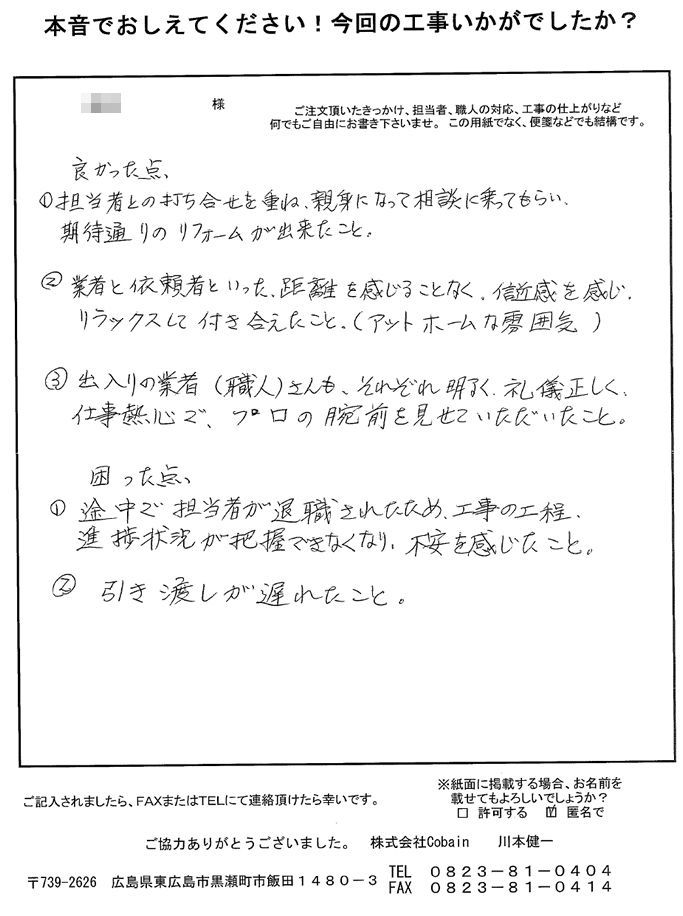 本音でおしえてください！今回の工事いかがでしたか？
様
ご注文頂いたきっかけ、担当者、職人の対応、工事の仕上がりなど
何でもご自由にお書き下さいませ。この用紙でなく、便箋などでも結構です。
良かった点、
①担当者との打ち合せを重ね、親身になって相談に乗ってもらい、
期待通りのリフォームが出来たこと。
②業者と依頼者といった、距離を感じることなく、信近感を感じ、
リラックスして付き合えたこと、（アットホームな雰囲気）
③出入りの業者（職人）さんも、それぞれ明るく、礼儀正しく、
仕事熱心で、プロの腕前を見せていただいたこと。
困った点、
①途中で担当者が退職されたため、工事の工程、
進捗状況が把握できなくなり、不安を感じたこと。
②引き渡しが遅れたこと。
ご記入されましたら、FAXまたはTELにて連絡頂けたら幸いです。
※紙面に掲載する場合、お名前を
載せてもよろしいでしょうか？
□ 許可する ☑ 匿名で
ご協力ありがとうございました。 株式会社Cobain 川本健一
〒739-2626 広島県東広島市黒瀬町市飯田１４８０－３
TEL ０８２３－８１－０４０４
FAX ０８２３－８１－０４１４